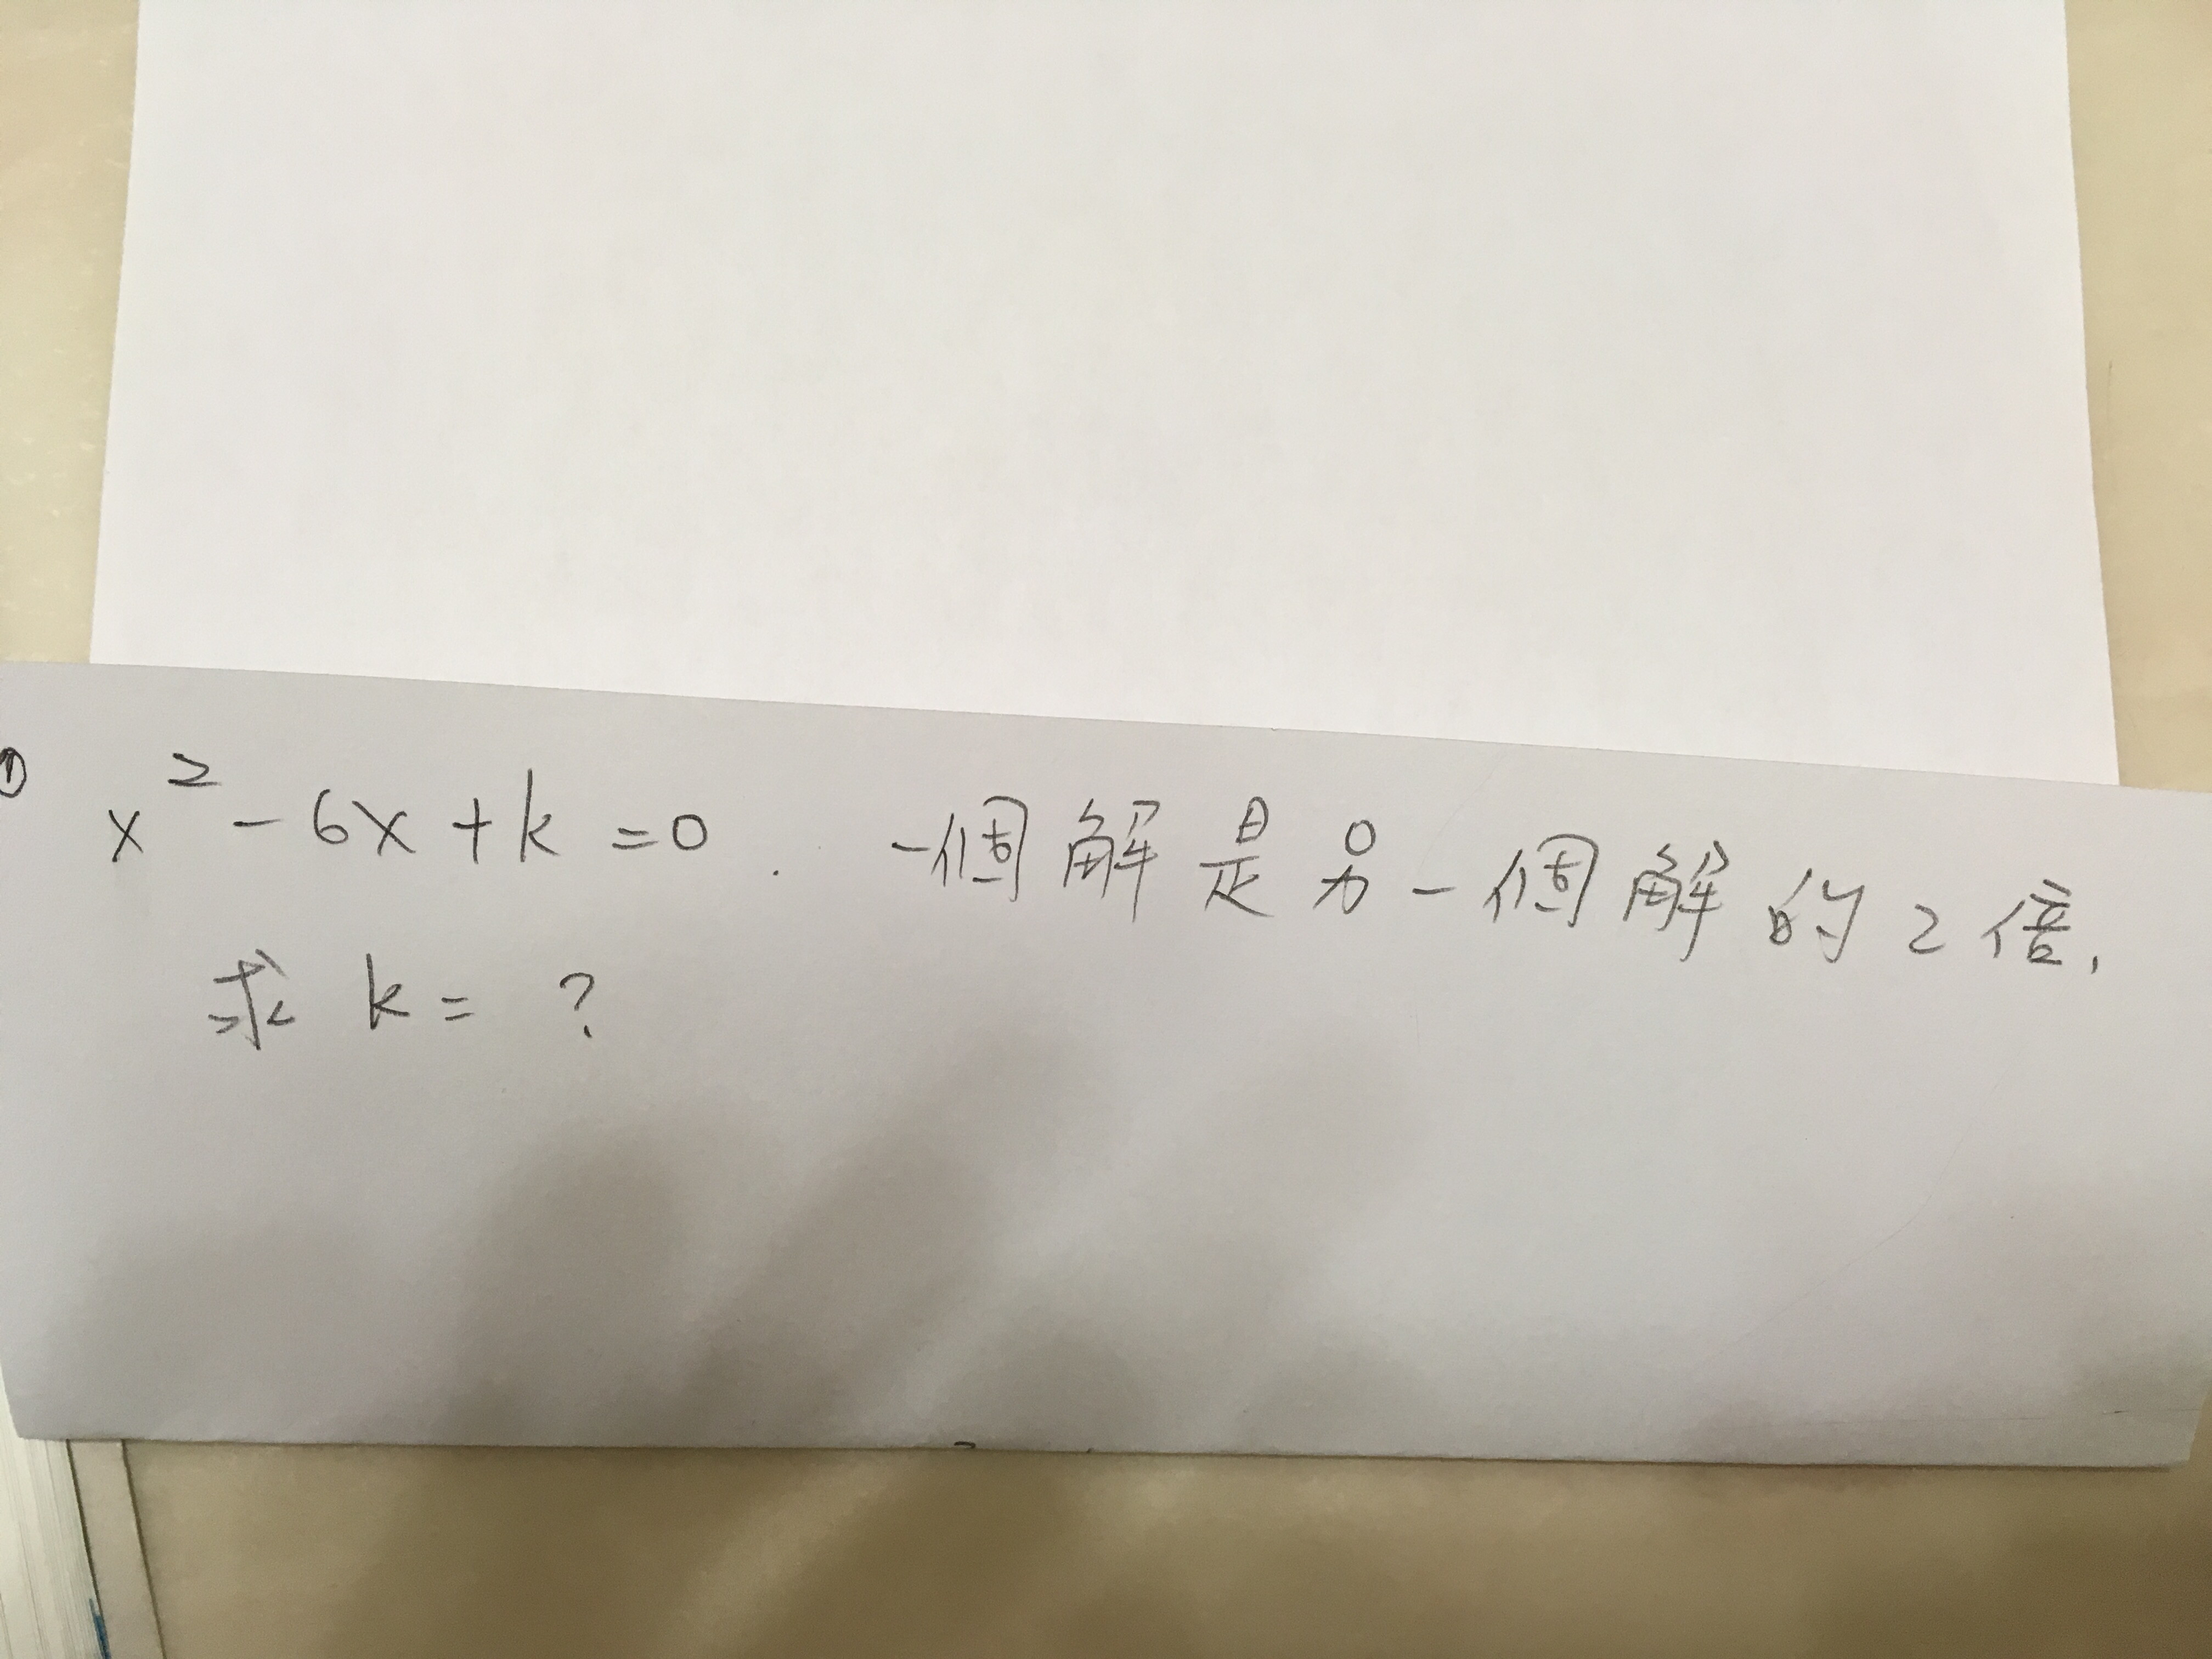 ① x² - 6x + k = 0. 一個解是另一個解的2倍,
求 k = ?